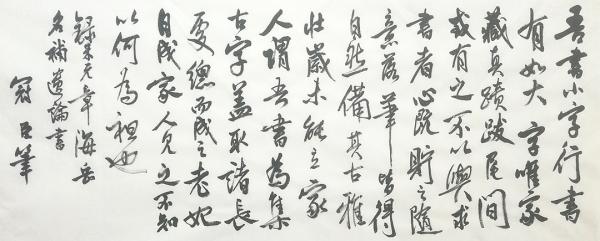 吾書小字行書
有如大字唯家
藏真蹟跋尾間
或有之不以與求
書者心既貯之隨
意落筆皆得
自然備其古雅
壯歲未能立家
人謂吾書為集
古字蓋取諸長
處總而成之老始
自成家人見之不知
以何為祖也
錄米元章海岳
名補遺論書
冠臣筆